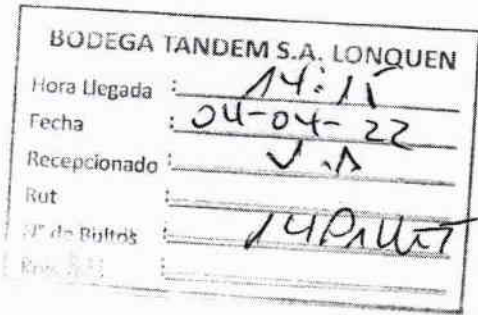 BODEGA TANDEM S.A. LONQUEN
Hora Llegada : 14:15
Fecha : 04-04-22
Recepcionado :
Rut :
N° de Bultos : 14 Pallet
: